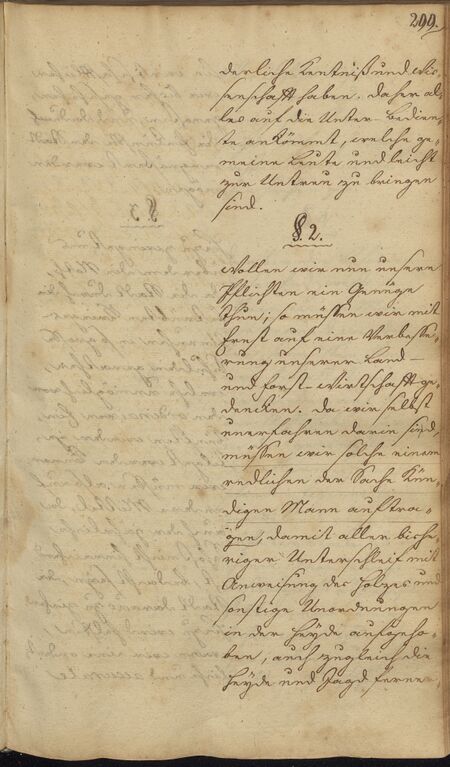 299.
derliche Kentniß und Wis-
senschafft haben. Daher al-
les auf die Unter-Bedien-
te ankömmt, welche ge-
meine Leute und leicht
zur Untreu zu bringen
sind.
§. 2.
Wollen wir nun unsern
Pflichten ein Genüge
thun; so müssen wir mit
Ernst auf eine Verbesse-
rung unserer Land-
und Forst-Wirtschafft ge-
dencken. Da wir selbst
unerfahren darin sind,
müssen wir solche einem
redlichen der Sache Kün-
digen Mann auftra-
gen, damit aller bishe-
riger Unterschleif mit
Anweisung des Holzes und
sonstige Unordnungen
in der Heyde aufgeho-
ben, auch zugleich die
Heyde und Jagd ferner-